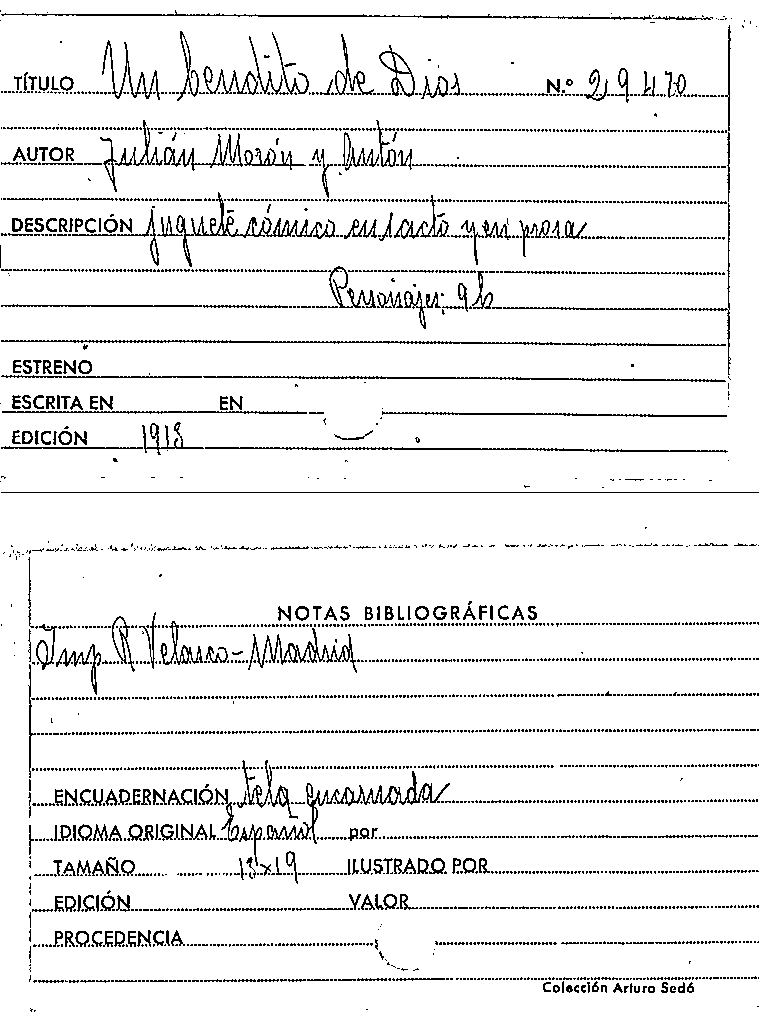 TÍTULO Un bendito de Dios N.º 29470
AUTOR Julián Morón y Antón
DESCRIPCIÓN juguete cómico en 1 acto y en prosa
Personajes: 9 h
ESTRENO
ESCRITA EN EN
EDICIÓN 1918
NOTAS BIBLIOGRÁFICAS
Imp R Velasco - Madrid
ENCUADERNACIÓN tela encarnada
IDIOMA ORIGINAL Español por
TAMAÑO 13x19 ILUSTRADO POR
EDICIÓN VALOR
PROCEDENCIA
Colección Arturo Sedó